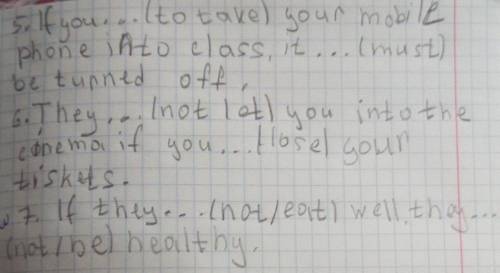 5. If you... (to take) your mobile
phone into class, it ... (must)
be turned off.
6. They... (not let) you into the
cenema if you... (lose) your
tiskets.
7. If they... (not/eat) well, thay...
(not/be) healthy.